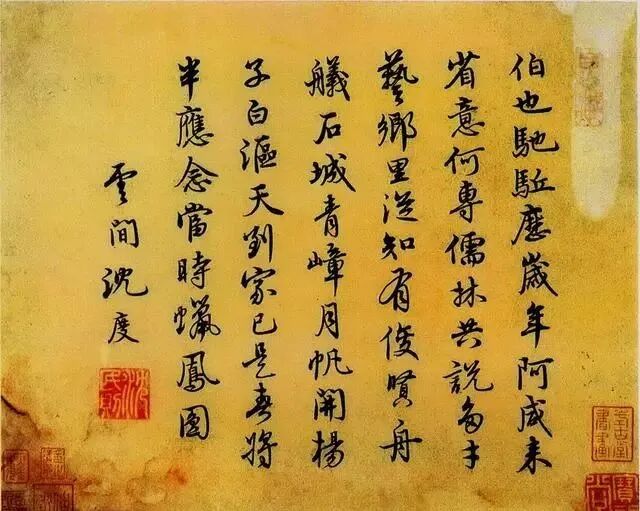 伯也馳駈歷歲年阿咸来
省意何專儒林共說多才
藝鄉里從知有俊賢舟
艤石城青嶂月帆開楊
子白漚天到家已是春將
半應念當時蠟鳳團
雲間沈度